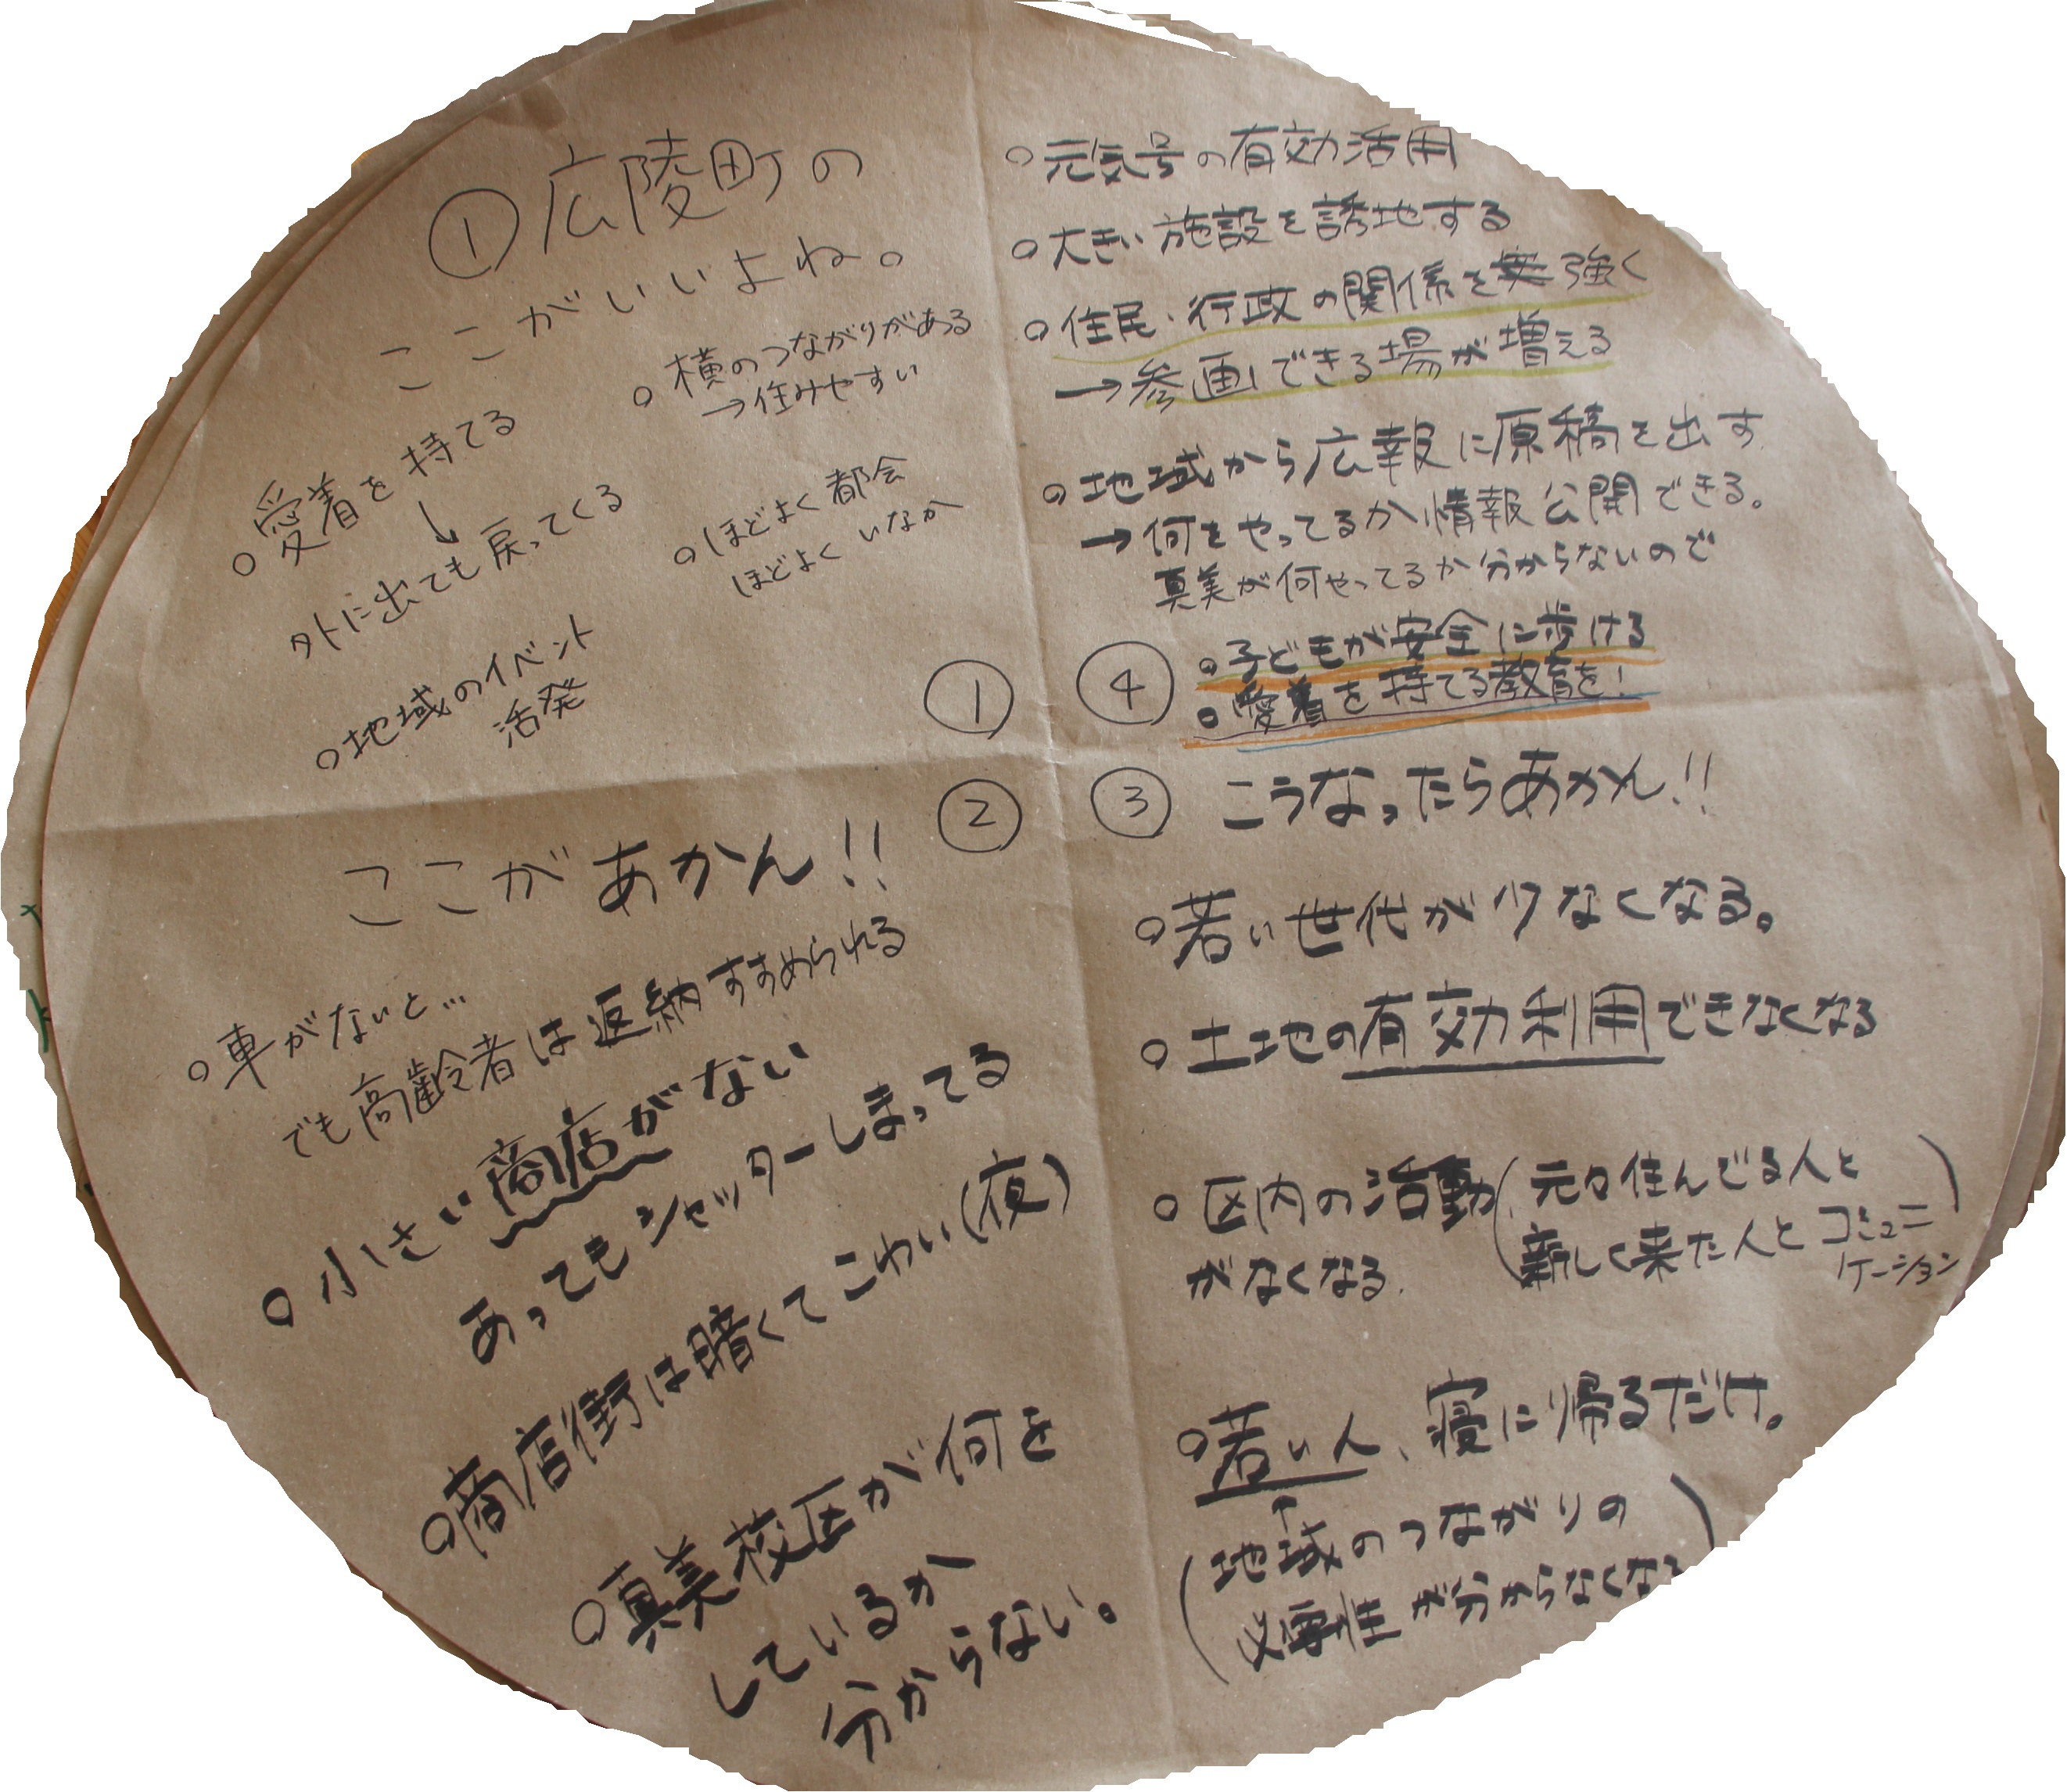 ①広陵町の
ここがいいよね。
○愛着を持てる
↓
外に出ても戻ってくる
○地域のイベント
活発
○横のつながりがある
→住みやすい
○ほどよく都会
ほどよくいなか
①
②
ここがあかん!!
○車がないと…
でも高齢者は返納すすめられる
○小さい商店がない
あってもシャッターしまってる
○商店街は暗くてこわい(夜)
○真美校区が何を
しているか
分からない。
③ こうなったらあかん!!
○若い世代が少なくなる。
○土地の有効利用できなくなる
○区内の活動(元々住んでる人と
がなくなる. 新しく来た人とコミュニ
ケーション)
○若い人、寝に帰るだけ。
↑
(地域のつながりの
必要性が分からなくなっ)
○元気号の有効活用
○大きい施設を誘地する
○住民・行政の関係を強く
→参画できる場が増える
○地域から広報に原稿を出す.
→何をやってるか情報公開できる。
真美が何やってるか分からないので
④ ○子どもが安全に歩ける
○愛着を持てる教育を!